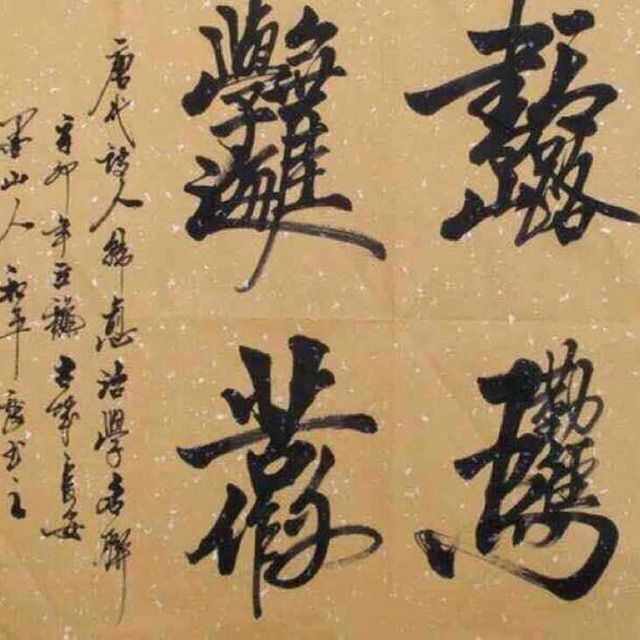 書山有路
勤為徑
學海無涯
苦作舟
唐代詩人韓愈治學名聯
辛卯年長安
山人和平